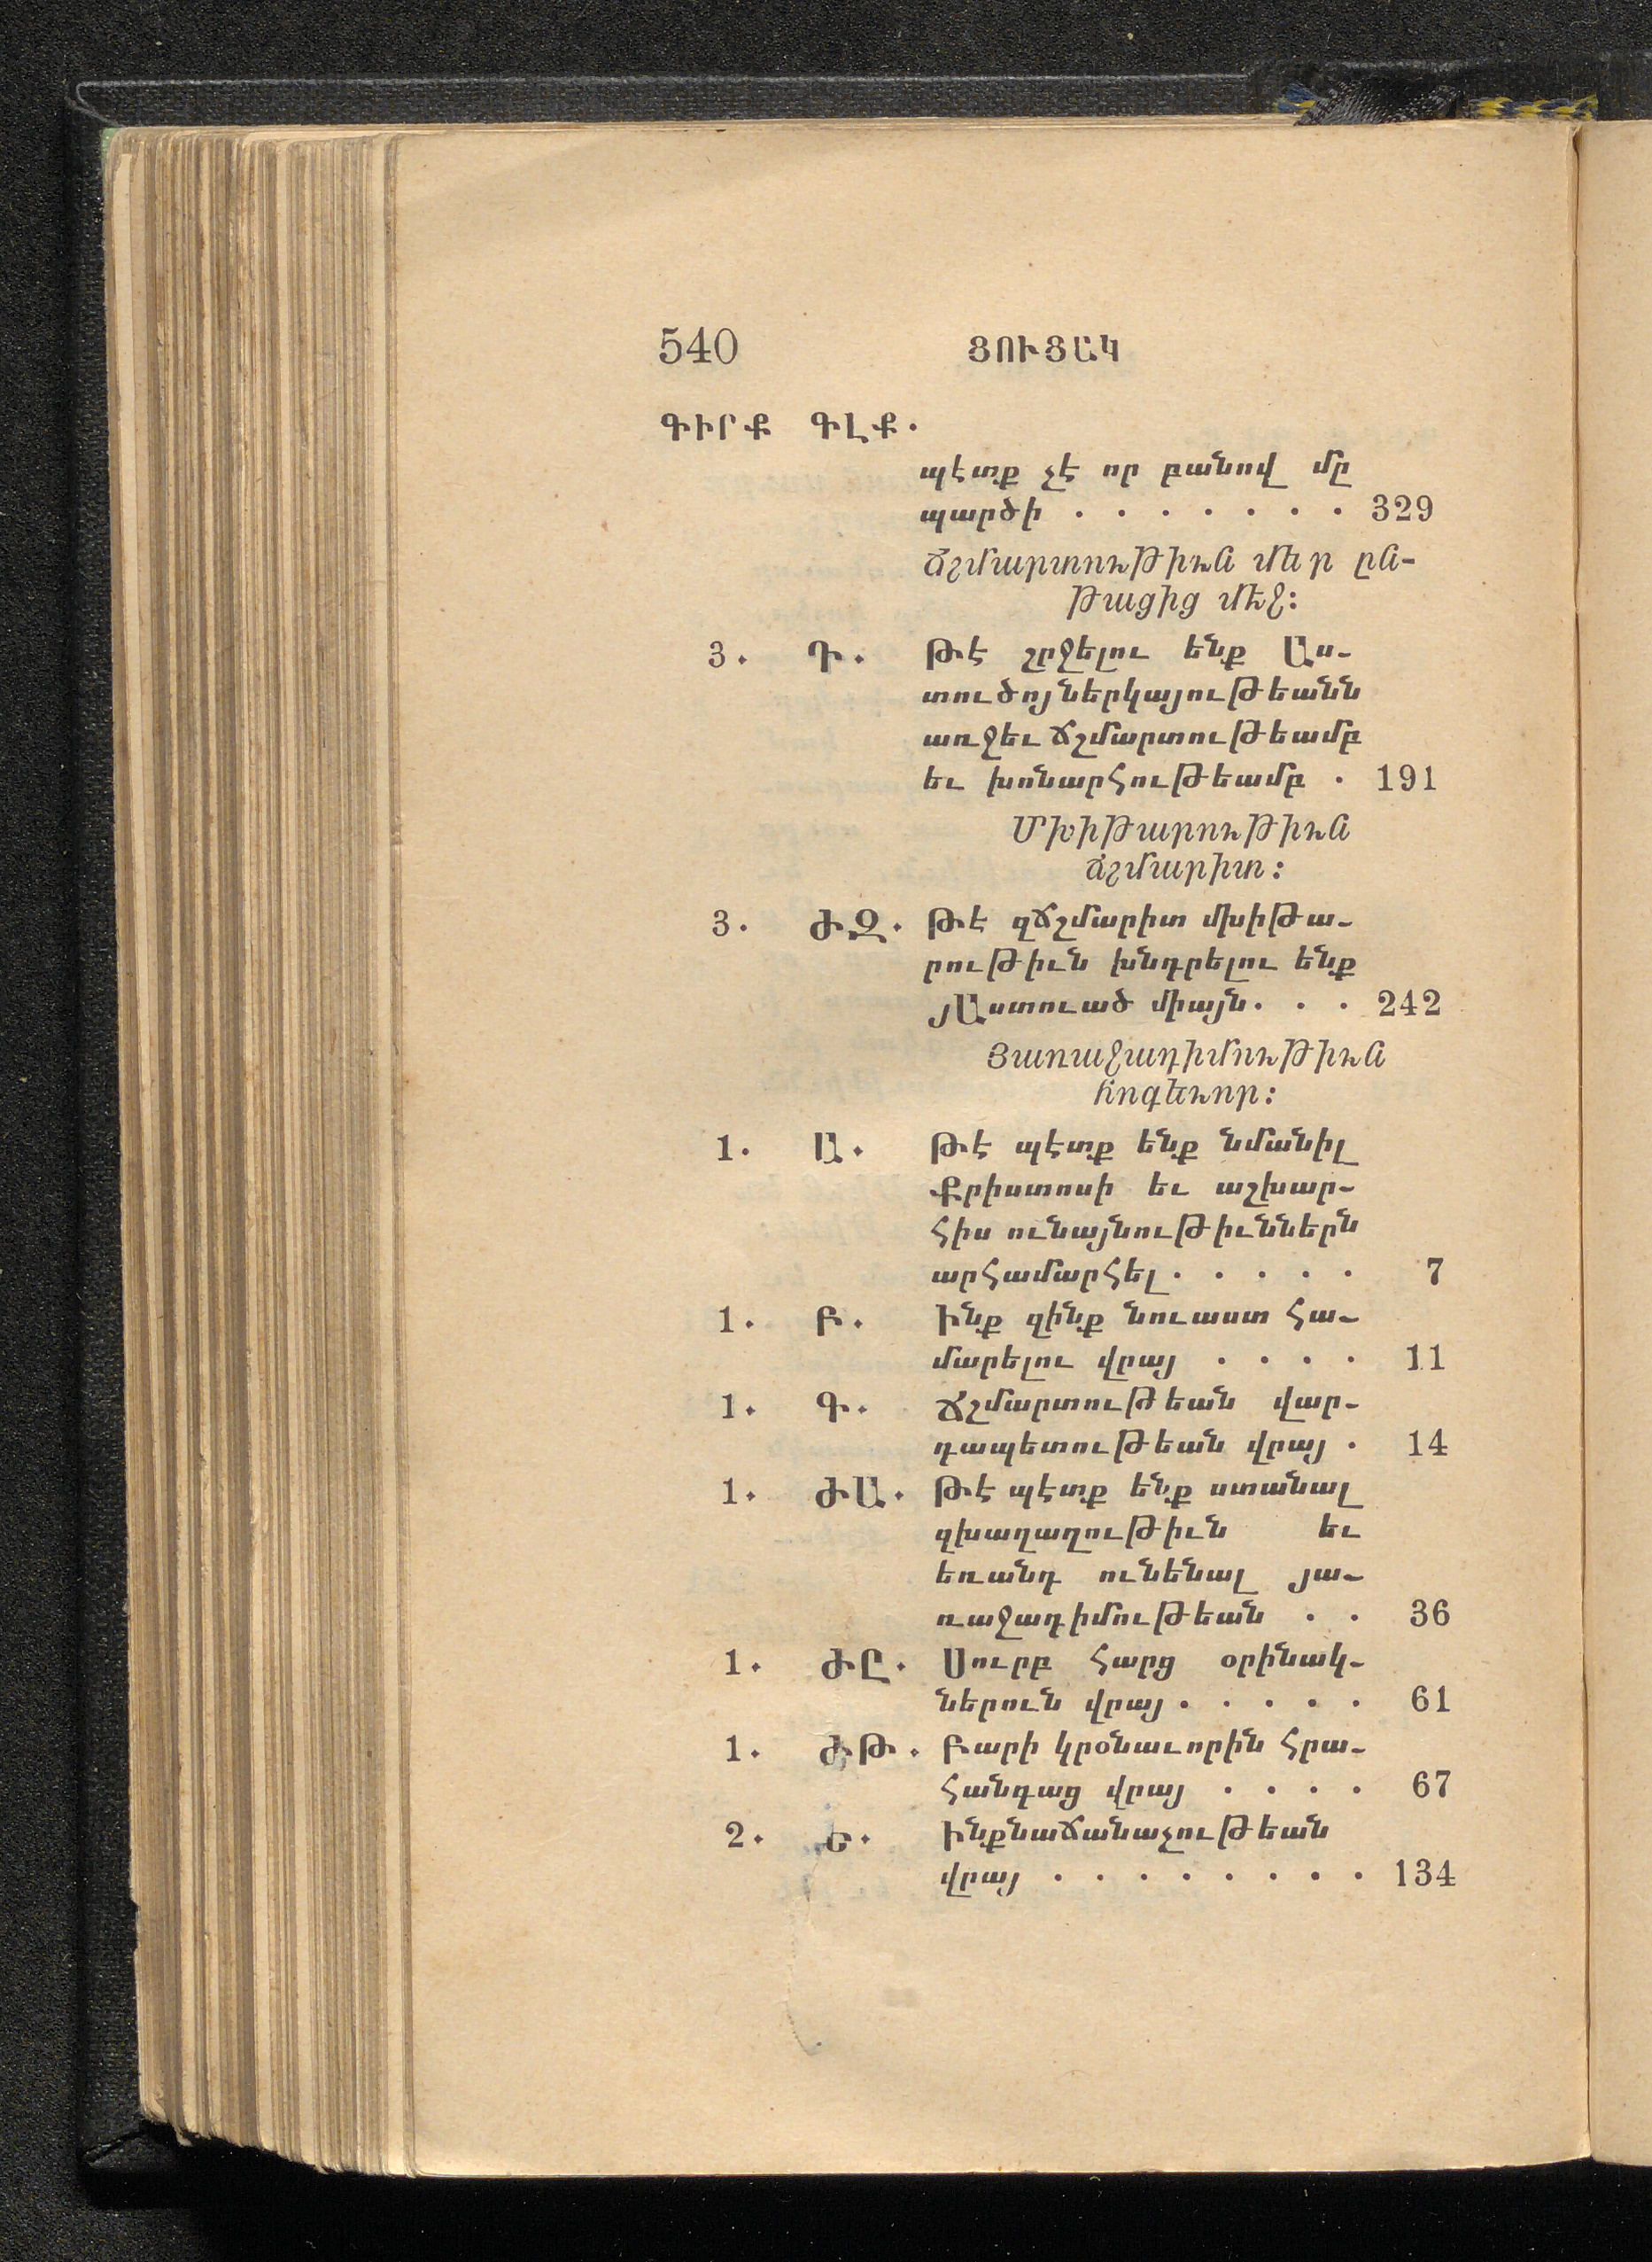 540 ՑՈՒՑԱԿ
ԳԻՐՔ ԳԼՔ.
պէտք չէ որ բանով մը
պարծի . . . . . . . 329
Ճշմարտութիւն մեր ըն-
թացից մէջ։
3. Դ. Թէ շրջելու ենք Աս-
տուծոյ ներկայութեանն
առջեւ ճշմարտութեամբ
եւ խոնարհութեամբ . 191
Մխիթարութիւն
ճշմարիտ։
3. ԺԶ. Թէ զճշմարիտ մխիթա-
րութիւն խնդրելու ենք
յԱստուած միայն. . . 242
Յառաջադիմութիւն
հոգեւոր։
1. Ա. Թէ պէտք ենք նմանիլ
Քրիստոսի եւ աշխար-
հիս ունայնութիւններն
արհամարհել. . . . . 7
1. Բ. Ինք զինք նուաստ հա-
մարելու վրայ . . . . 11
1. Գ. Ճշմարտութեան վար-
դապետութեան վրայ . 14
1. ԺԱ. Թէ պէտք ենք ստանալ
զխաղաղութիւն եւ
եռանդ ունենալ յա-
ռաջադիմութեան . . 36
1. ԺԸ. Սուրբ հարց օրինակ-
ներուն վրայ. . . . . 61
1. ԺԹ. Բարի կրօնաւորին հրա-
հանգաց վրայ . . . . 67
2. Ե. Ինքնաճանաչութեան
վրայ . . . . . . . . 134